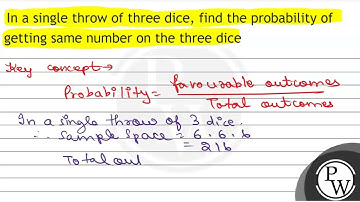 In a single throw of three dice, find the probability of
getting same number on the three dice
Key concept→
Probability = favourable outcomes
Total outcomes
In a single throw of 3 dice.
∴ Sample Space = 6 · 6 · 6
= 216
Total out
PW